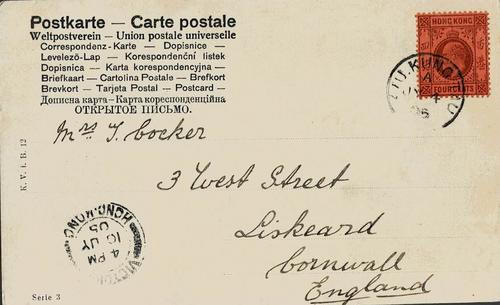 Postkarte — Carte postale
Weltpostverein — Union postale universelle
Correspondenz-Karte — Dopisnice —
Levelező-Lap — Korespondenční listek
Dopisnica — Karta korespondencyjna —
Briefkaart — Cartolina Postale — Brefkort
Brevkort — Tarjeta Postal — Postcard —
Дописна карта — Карта кореспонденційна
ОТКРЫТОЕ ПІСЬМО.
HONG KONG
FOUR CENTS
LIU KUNG TAU
A
05
Mrs J. Cocker
3 West Street
Liskeard
Cornwall
England
K. V. i. B. 12
VICTORIA
HONG KONG
4 PM
10 JY
05
Serie 3